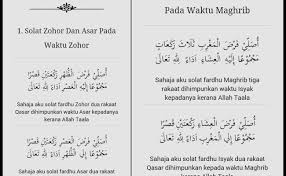 1. Solat Zohor Dan Asar Pada
Waktu Zohor
أُصَلِّيْ فَرْضَ الظُّهْرِ رَكْعَتَيْنِ قَصْرًا
مَجْمُوْعًا إِلَيْهِ الْعَصْرُ أَدَاءً لِلّٰهِ تَعَالَى
Sahaja aku solat fardhu Zohor dua rakaat
Qasar dihimpunkan waktu Asar kepadanya
kerana Allah Taala
أُصَلِّيْ فَرْضَ الْعَصْرِ رَكْعَتَيْنِ قَصْرًا
مَجْمُوْعًا إِلَى الظُّهْرِ أَدَاءً لِلّٰهِ تَعَالَى
Sahaja aku solat fardhu Asar dua rakaat
Pada Waktu Maghrib
أُصَلِّيْ فَرْضَ الْمَغْرِبِ ثَلَاثَ رَكَعَاتٍ
مَجْمُوْعًا إِلَيْهِ الْعِشَاءُ أَدَاءً لِلّٰهِ تَعَالَى
Sahaja aku solat fardhu Maghrib tiga
rakaat dihimpunkan waktu Isyak
kepadanya kerana Allah Taala
أُصَلِّيْ فَرْضَ الْعِشَاءِ رَكْعَتَيْنِ قَصْرًا
مَجْمُوْعًا إِلَى الْمَغْرِبِ أَدَاءً لِلّٰهِ تَعَالَى
Sahaja aku solat fardhu Isyak dua rakaat
Qasar dihimpunkan waktu Isyak kepada
Maghrib kerana Allah Taala